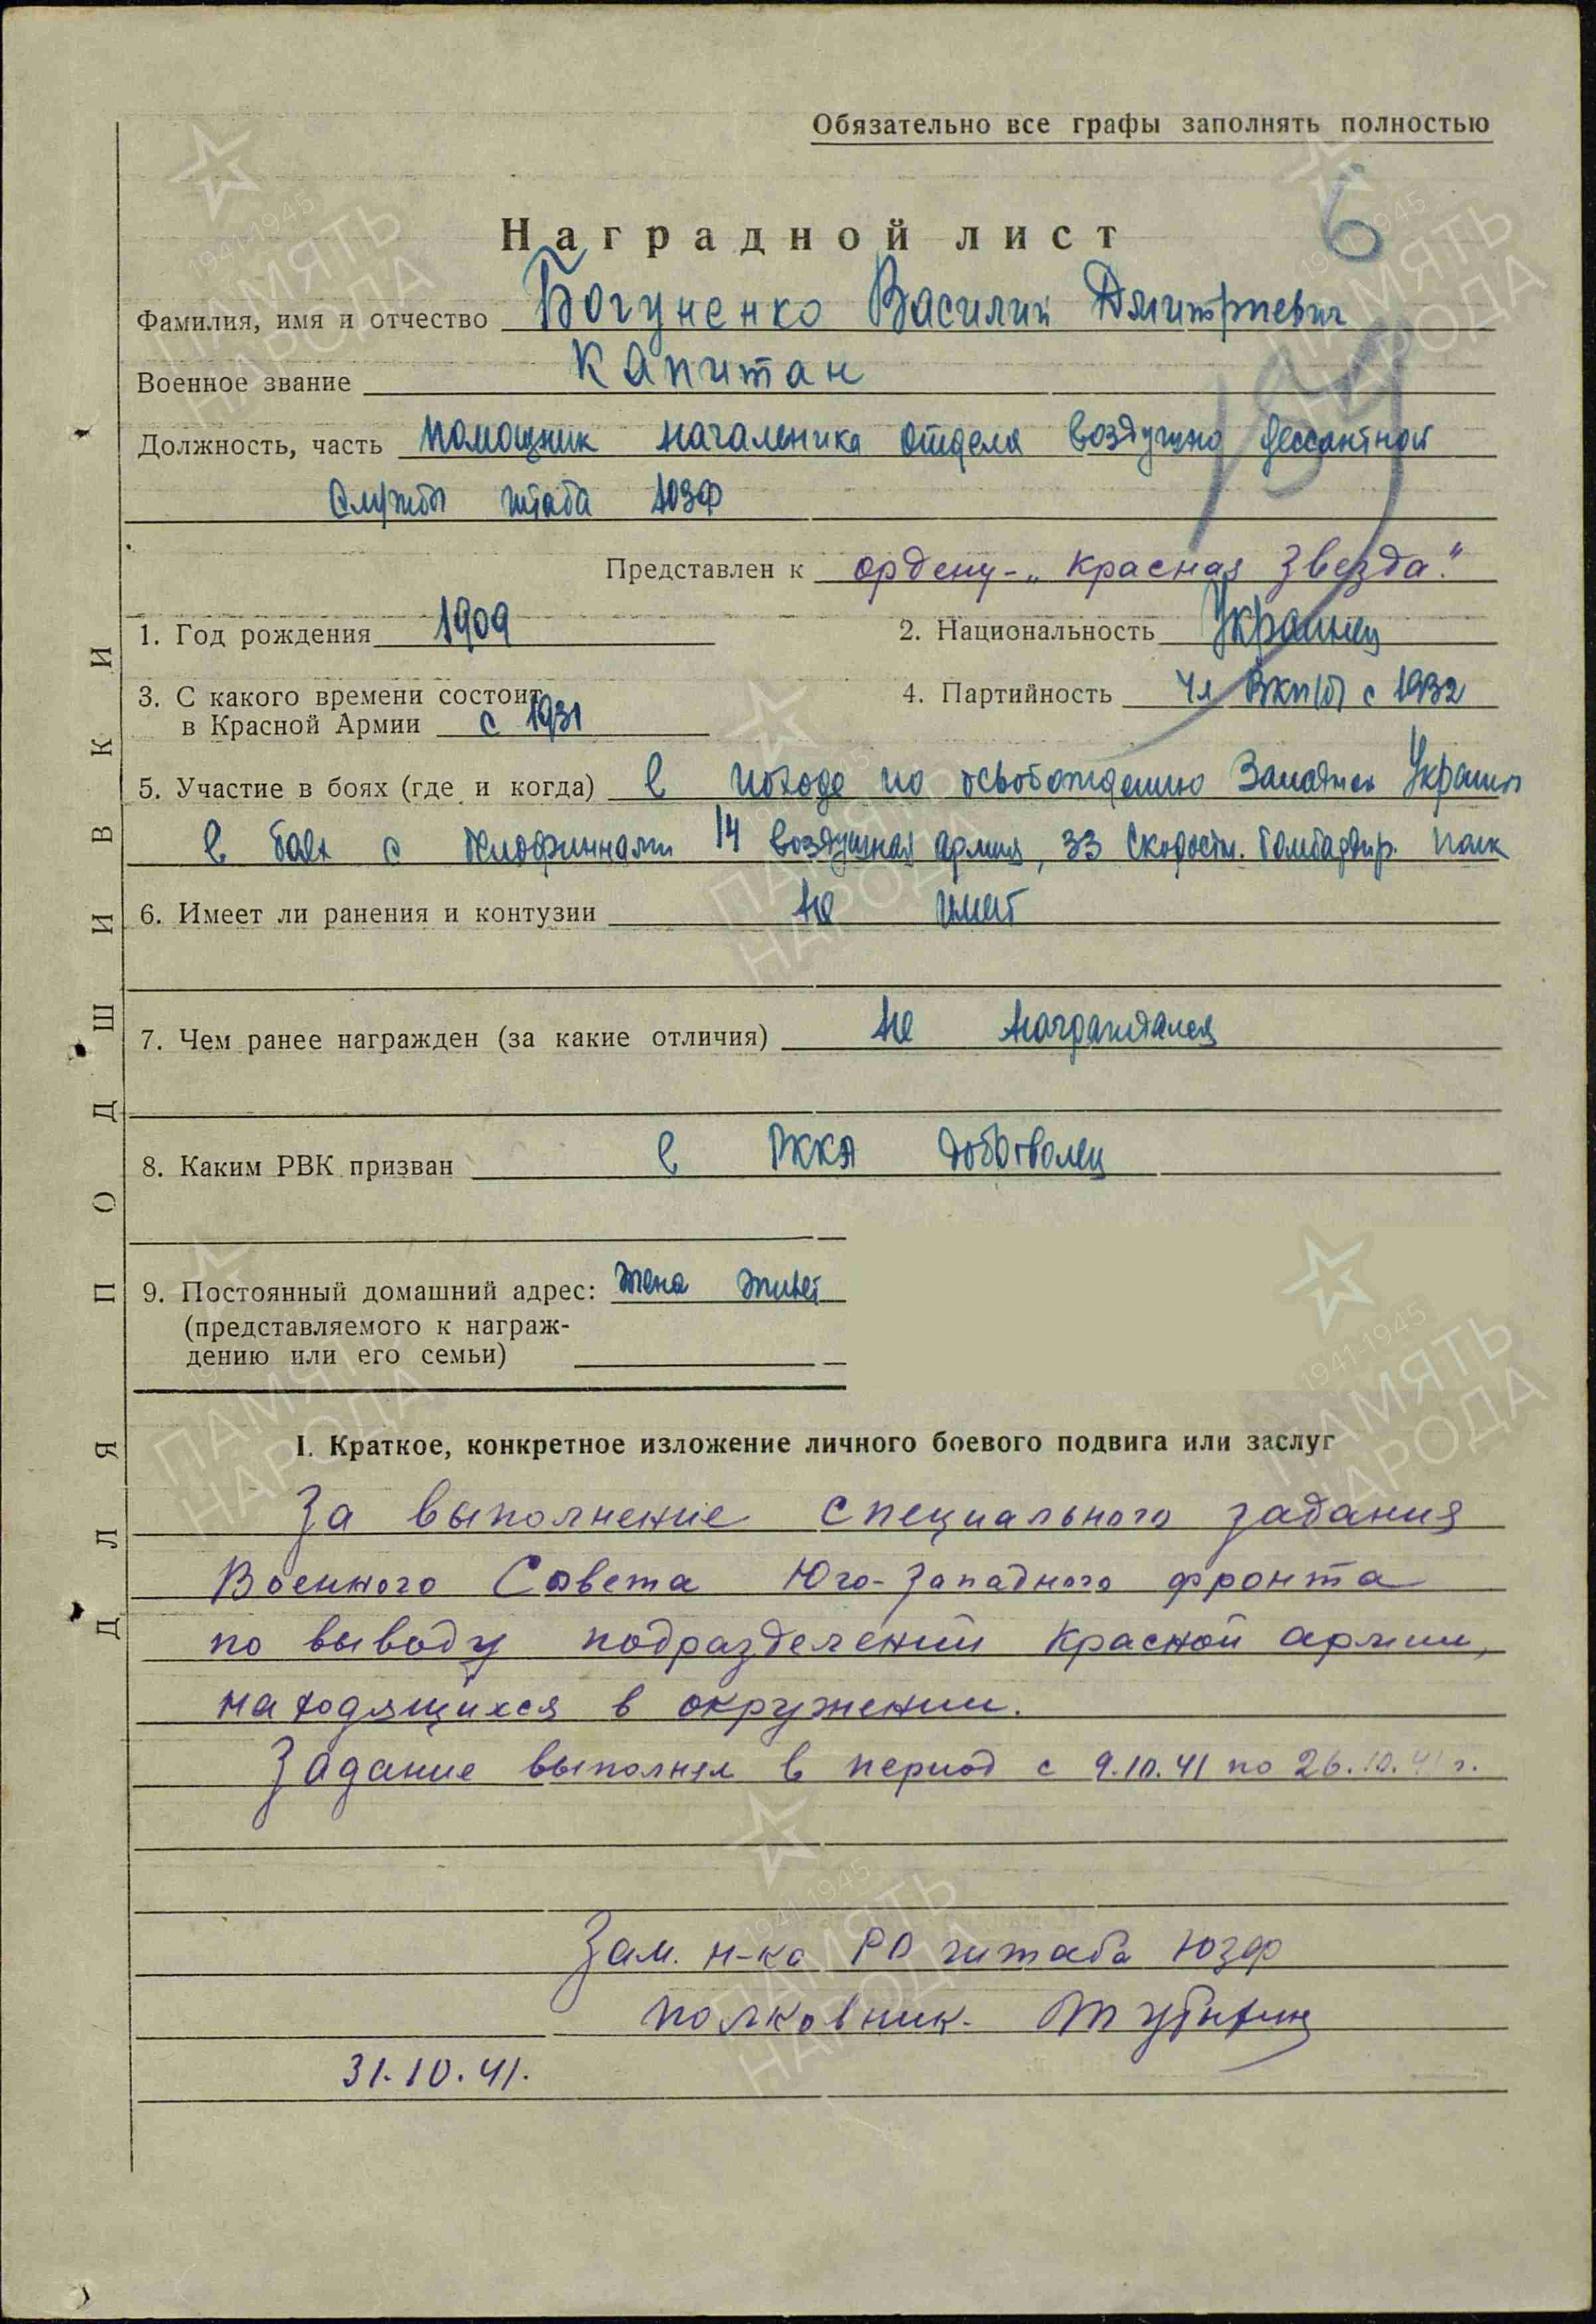 Обязательно все графы заполнять полностью
6
Наградной лист
Фамилия, имя и отчество Богуненко Василий Дмитриевич
Военное звание Капитан
Должность, часть помощник начальника отдела воздушно дессантной
службы штаба ЮЗФ
Представлен к ордену - „Красная Звезда."
1. Год рождения 1909
2. Национальность Украинец
3. С какого времени состоит
в Красной Армии с 1931
4. Партийность Чл ВКП(б) с 1932
5. Участие в боях (где и когда) в походе по освобождению Западной Украины
в боях с белофиннами 14 воздушная армия, 33 Скоростн. бомбардир. полк
6. Имеет ли ранения и контузии не имеет
7. Чем ранее награжден (за какие отличия) не награждался
8. Каким РВК призван в РККА доброволец
9. Постоянный домашний адрес: жена живет
(представляемого к награж-
дению или его семьи)
I. Краткое, конкретное изложение личного боевого подвига или заслуг
За выполнение специального задания
Военного Совета Юго-Западного фронта
по выводу подразделений Красной армии,
находящихся в окружении.
Задание выполнял в период с 9.10.41 по 26.10.41 г.
Зам. н-ка РО штаба ЮЗФ
полковник.
31.10.41.
ДЛЯ ПОДШИВКИ
1941-1945
ПАМЯТЬ
НАРОДА